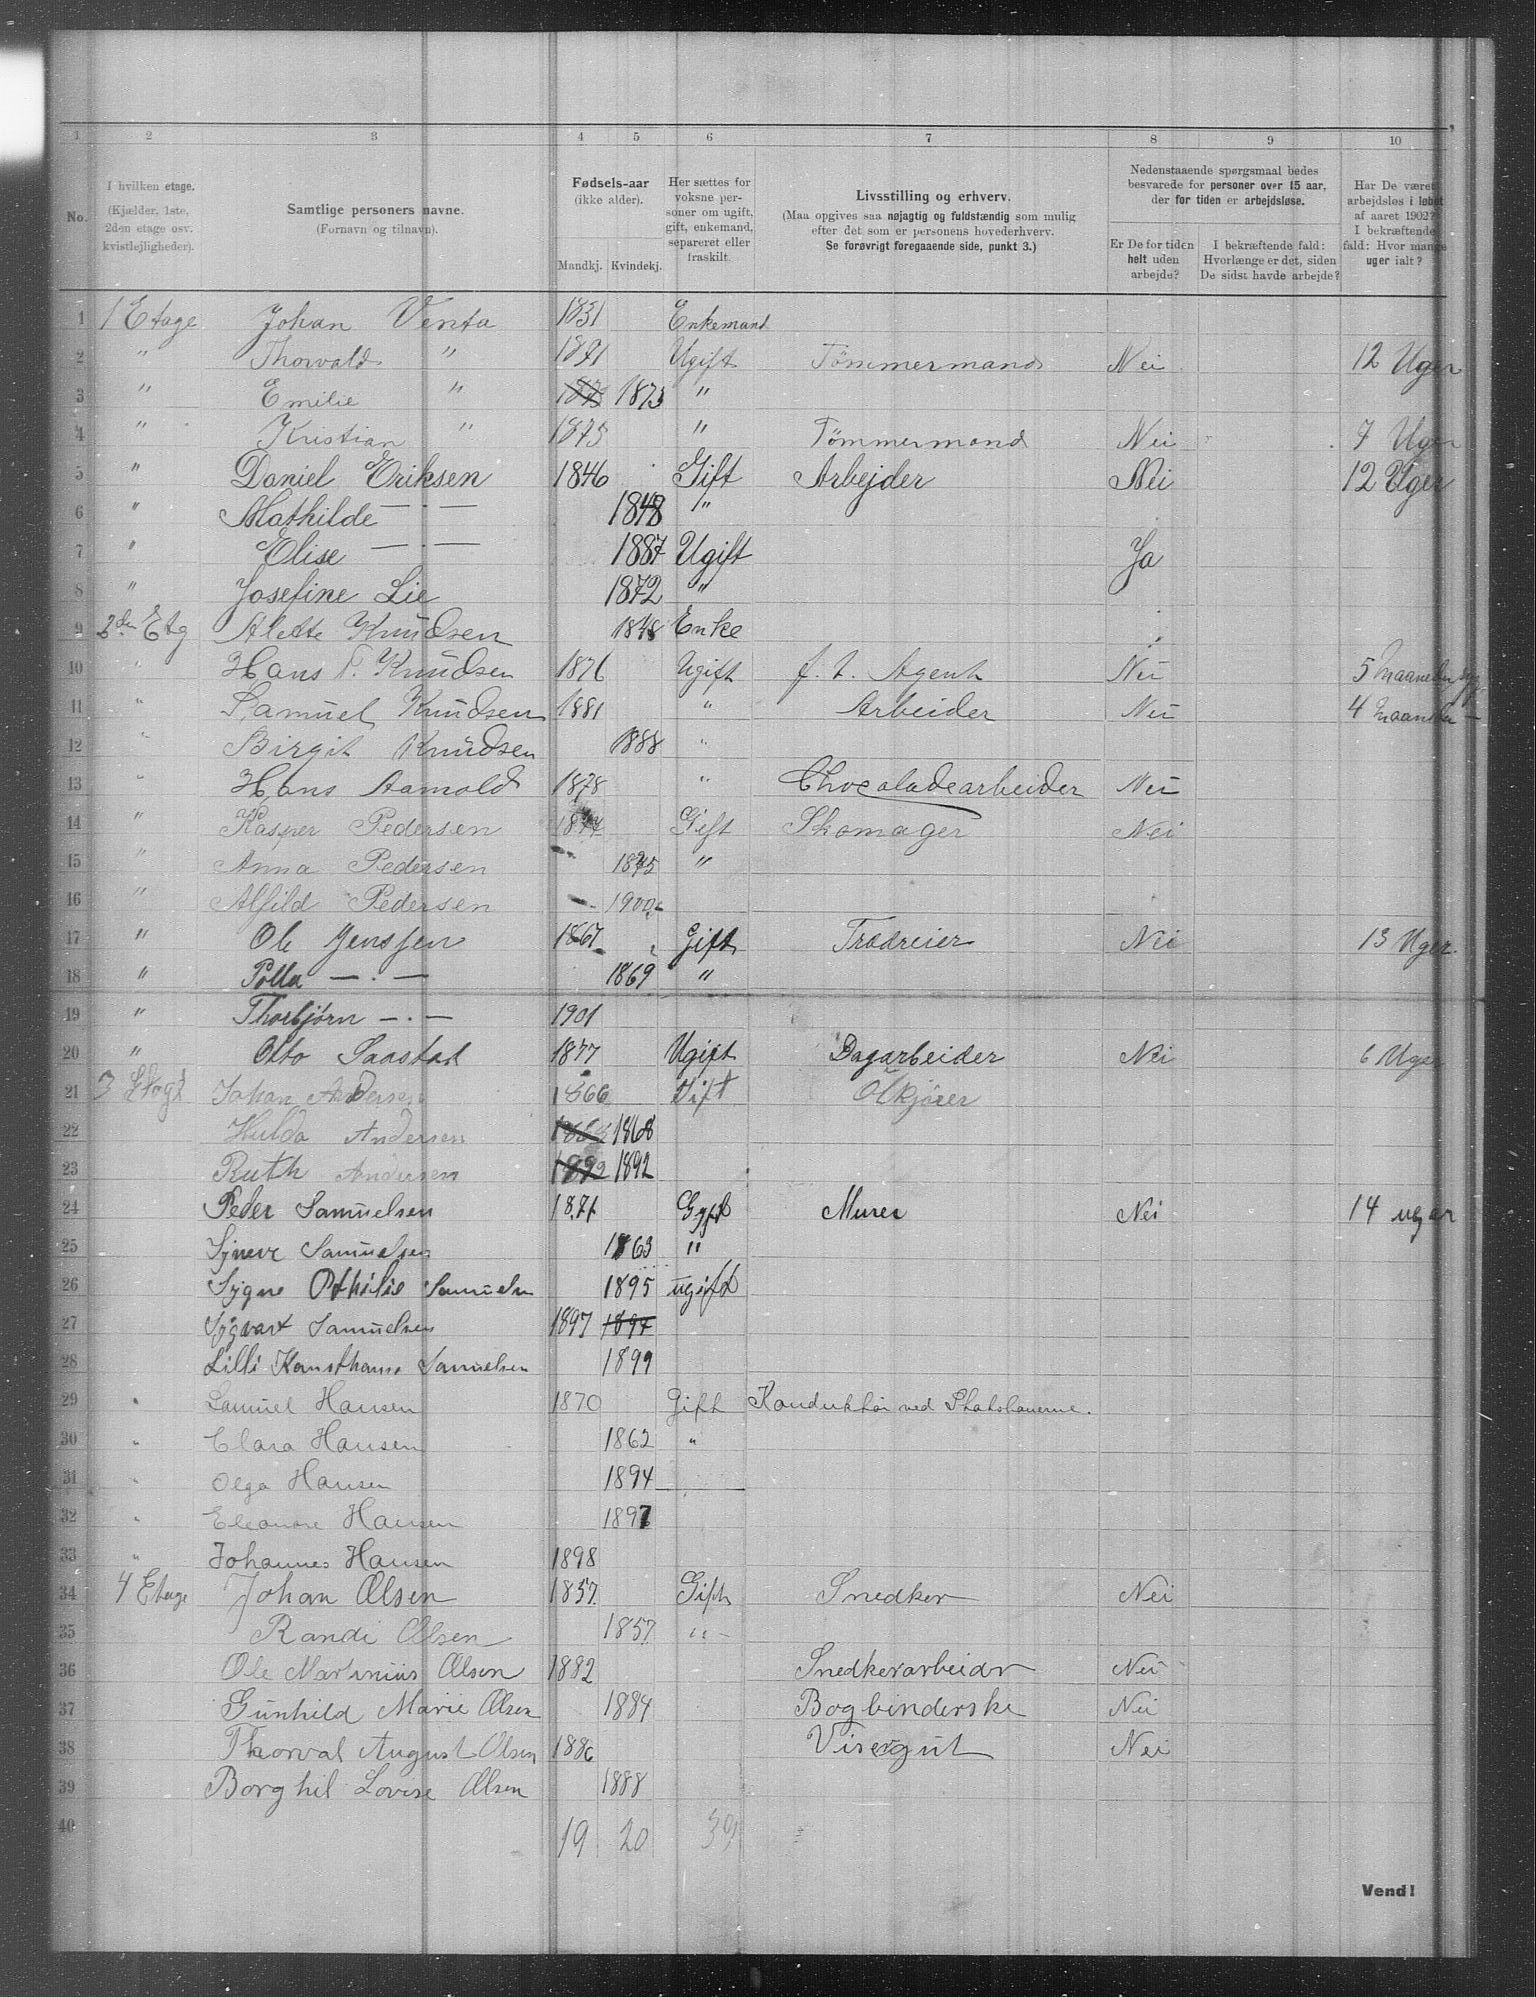 1 2 3 4 5 6 7 8 9 10
No.
I hvilken etage.
(Kjælder, 1ste,
2den etage osv.
kvistlejligheder).
Samtlige personers navne.
(Fornavn og tilnavn).
Fødsels-aar
(ikke alder).
Mandkj. Kvindekj.
Her sættes for
voksne per-
soner om ugift,
gift, enkemand,
separeret eller
fraskilt.
Livsstilling og erhverv.
(Maa opgives saa nøjagtig og fuldstændig som mulig
efter det som er personens hovederhverv.
Se forøvrigt foregaaende side, punkt 3.)
Nedenstaaende spørgsmaal bedes
besvarede for personer over 15 aar,
der for tiden er arbejdsløse.
Er De for tiden
helt uden
arbejde?
I bekræftende fald:
Hvorlænge er det, siden
De sidst havde arbejde?
Har De været
arbejdsløs i løbet
af aaret 1902?
I bekræftende
fald: Hvor mange
uger ialt?
1 1 Etage Johan Venta 1831 Enkemand
2 " Thorvald " 1871 Ugift Tømmermand Nei 12 Uger
3 " Emilie " 1873 1873 "
4 " Kristian " 1875 " Tømmermand Nei 7 Uger
5 " Daniel Eriksen 1846 Gift Arbejder Nei 12 Uger
6 " Mathilde — · — 1848 "
7 " Elise — · — 1887 Ugift Ja
8 " Josefine Lie 1872 "
9 2den Etg Alette Knudsen 1848 Enke
10 " Hans P. Knudsen 1876 Ugift f. t. Agent Nei 5 Maaneder
11 " Samuel Knudsen 1881 " Arbeider Nei 4 Maaneder —
12 " Birgit Knudsen 1888 "
13 " Hans Aamold 1878 " Chocoladearbeider Nei
14 " Kasper Pedersen 1877 Gift Skomager Nei
15 " Anna Pedersen 1875 "
16 " Alfild Pedersen 1900
17 " Ole Jenssen 1867 Gift Trædreier Nei 13 Uger.
18 " Polla — · — 1869 "
19 " Thorbjørn — · — 1901
20 " Otto Saastad 1877 Ugift Dagarbeider Nei 6 Uger
21 3 Etage Johan Andersen 1866 Gift Ølkjører
22 Hulda Andersen 1868 1868
23 Ruth Andersen 1892 1892
24 Peder Samuelsen 1871 Gift Murer Nei 14 uger
25 Syneve Samuelsen 1863 "
26 Sygne Othilie Samuelsn 1895 ugift
27 Sygvart Samuelsen 1897 1897
28 Lilli Konsthanse Samuelsen 1899
29 " Samuel Hansen 1870 Gift Konduktør ved Statsbanerne.
30 " Clara Hansen 1862 "
31 " Olga Hansen 1894
32 " Eleonore Hansen 1897
33 " Johannes Hansen 1898
34 4 Etage Johan Olsen 1857. Gift Snedker Nei
35 Randi Olsen 1857. " -
36 Ole Martinius Olsen 1882 Snedkerarbeidr Nei
37 Gunhild Marie Olsen 1884 Bogbinderske Nei
38 Thorval August Olsen 1886 Visergut Nei
39 Borghil Lovise Olsen 1888
40 19 20 39
Vend!